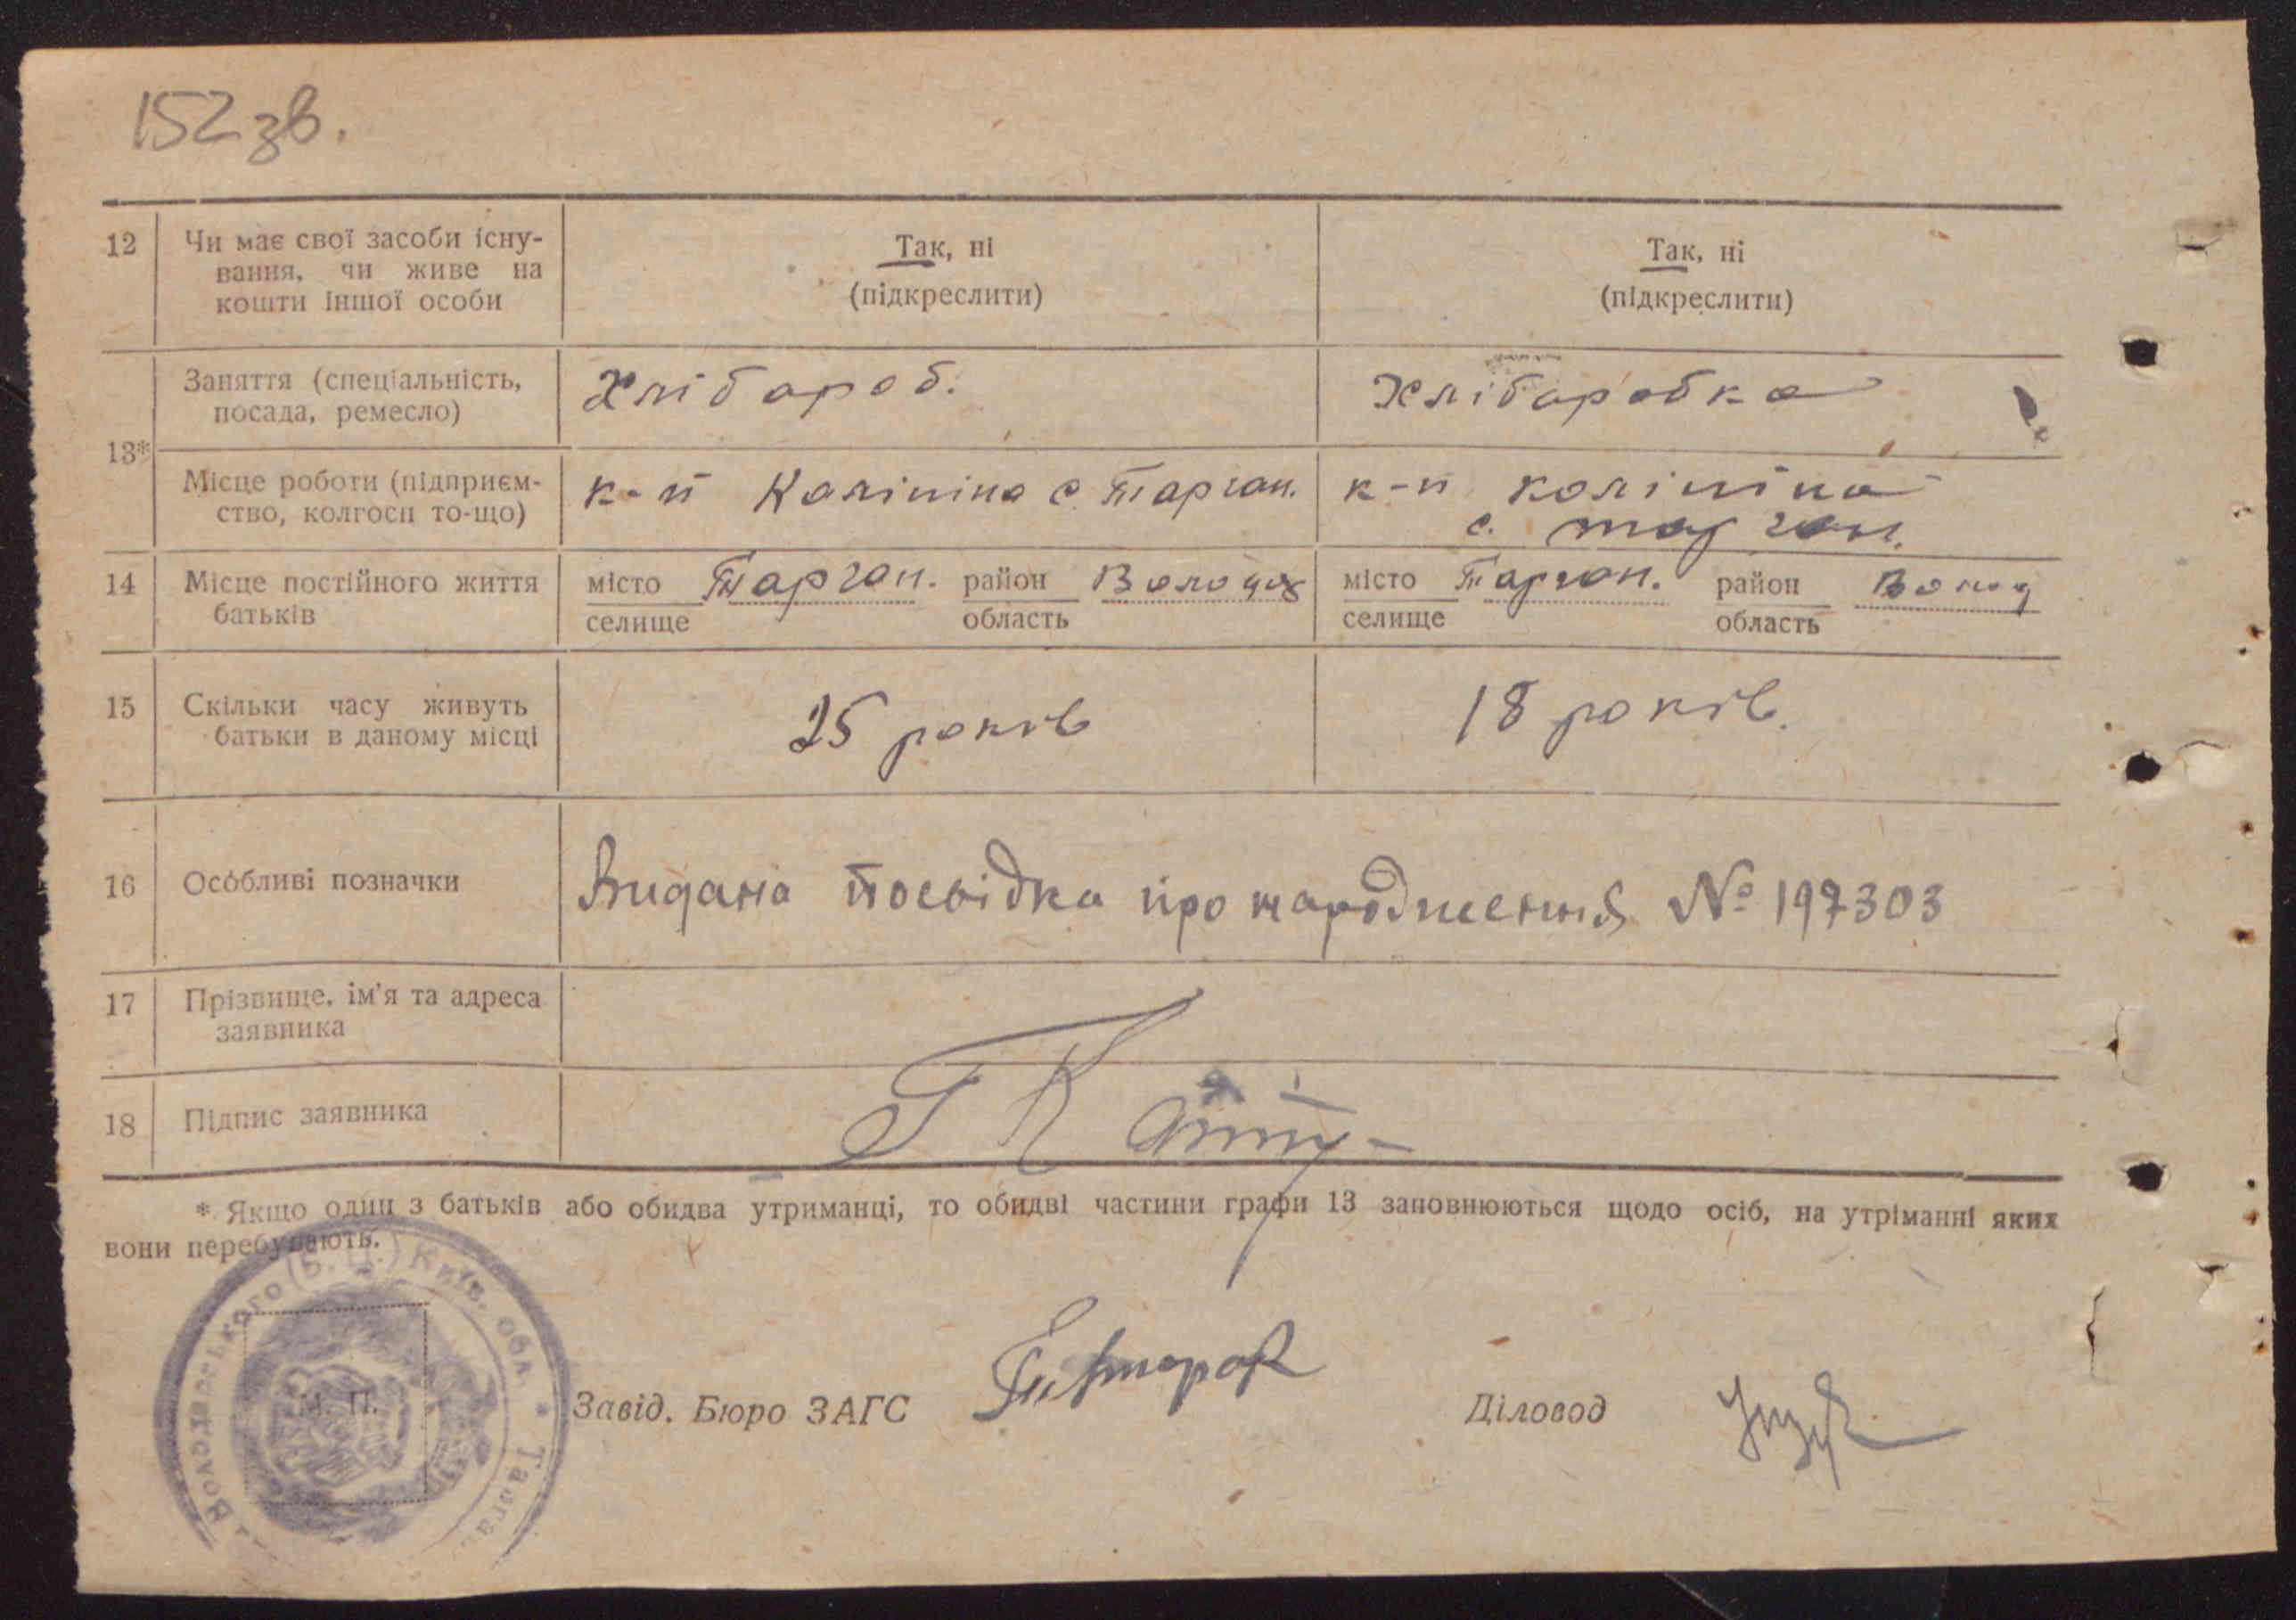 152 зв.
12 Чи має свої засоби існу- Так, ні Так, ні
вання, чи живе на (підкреслити) (підкреслити)
кошти іншої особи
13* Заняття (спеціальність, Хлібароб. Хлібаробка
посада, ремесло)
Місце роботи (підприєм- к-п Калініна с. Тарган. к-п Калініна
ство, колгосп то-що) с. Тарган.
14 Місце постійного життя місто Тарган. район Волод місто Тарган. район Волод
батьків селище область селище область
15 Скільки часу живуть 25 років 18 років.
батьки в даному місці
16 Особливі позначки Видана посвідка про народження № 197303
17 Прізвище, ім'я та адреса
заявника
18 Підпис заявника
* Якщо один з батьків або обидва утриманці, то обидві частини графи 13 заповнюються щодо осіб, на утріманні яких
вони перебувають.
Володарського (Б. Ц.) Київ. обл. * Тарга
М. П.
Завід. Бюро ЗАГС Діловод